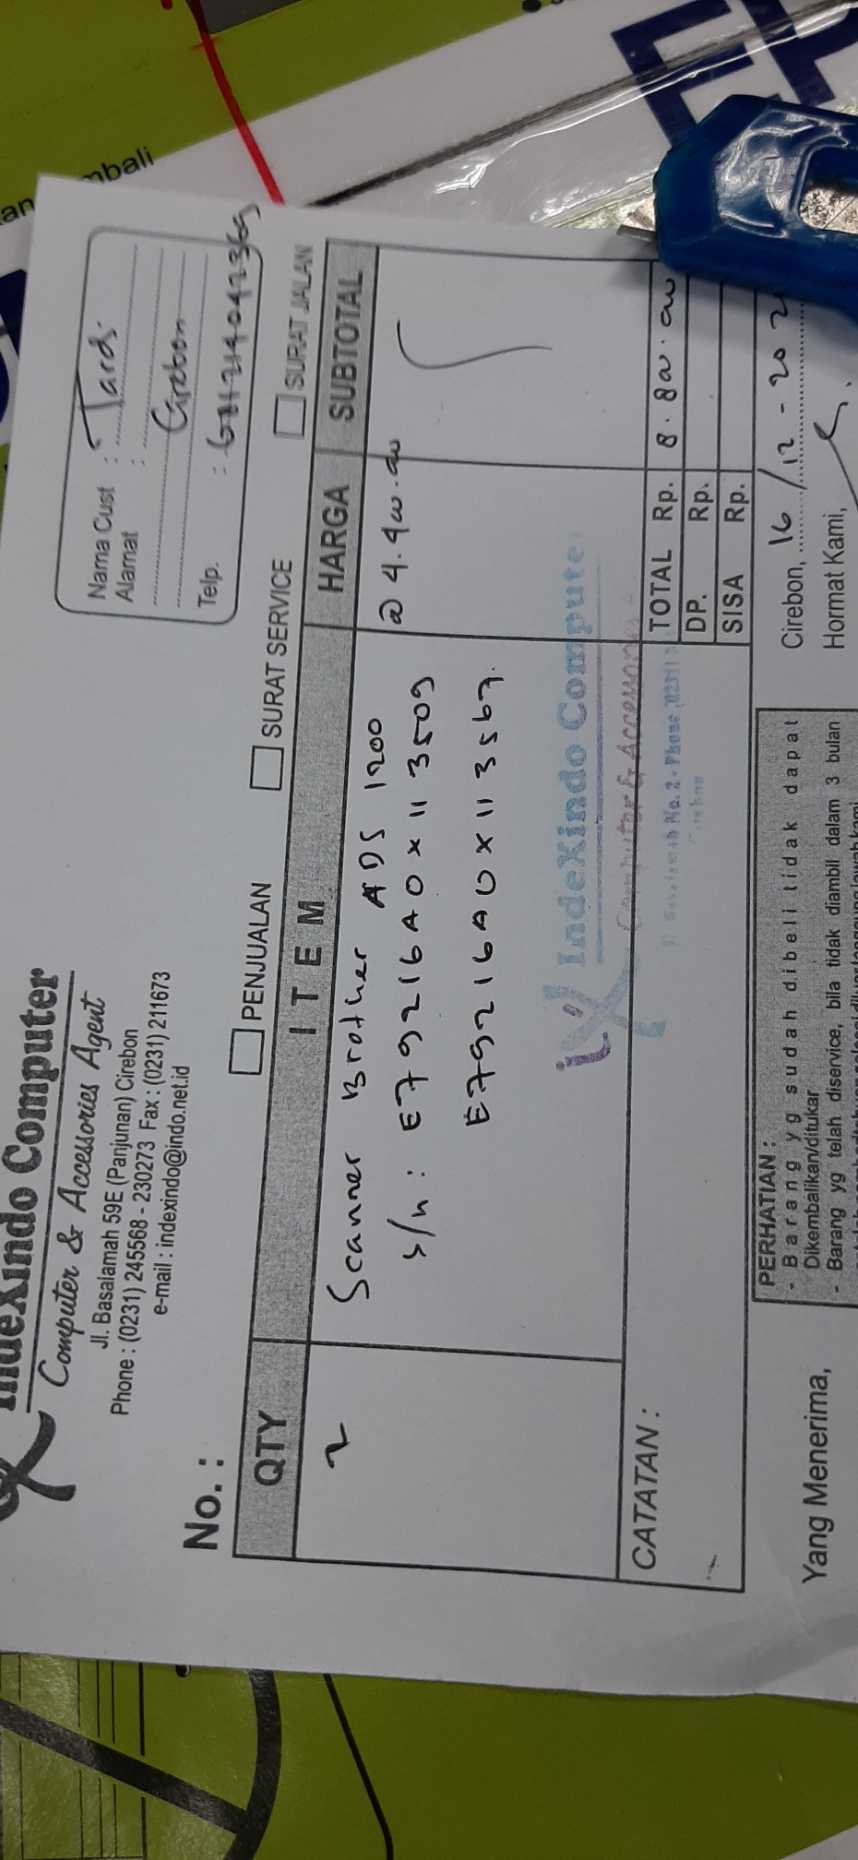 Indexindo Computer
Computer & Accessories Agent
Jl. Basalamah 59E (Panjunan) Cirebon
Phone : (0231) 245568 - 230273 Fax : (0231) 211673
e-mail : indexindo@indo.net.id
Nama Cust :
Alamat :
Cirebon
Telp. :
No. :
PENJUALAN
SURAT SERVICE
SURAT JALAN
QTY ITEM HARGA SUBTOTAL
2 Scanner Brother ADS 1200 @ 4.400.000
s/n : E79216A0x113509
E79216A0x113567.
Indexindo Computer
Computer & Accessories
No. 2 - Phone
CATATAN :
TOTAL Rp. 8.800.000
DP. Rp.
SISA Rp.
Cirebon, 16/12 - 202
PERHATIAN :
- Barang yg sudah dibeli tidak dapat
Dikembalikan/ditukar
- Barang yg telah diservice, bila tidak diambil dalam 3 bulan
Yang Menerima,
Hormat Kami,
mbali